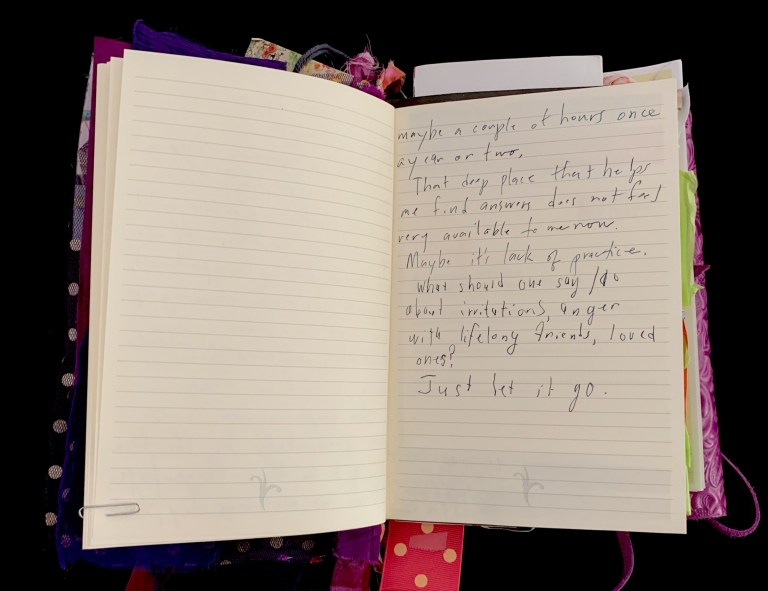 maybe a couple of hours once
a year or two.
That deep place that helps
me find answers does not feel
very available to me now.
Maybe it's lack of practice.
What should one say/do
about irritations, anger
with lifelong friends, loved
ones?
Just let it go.